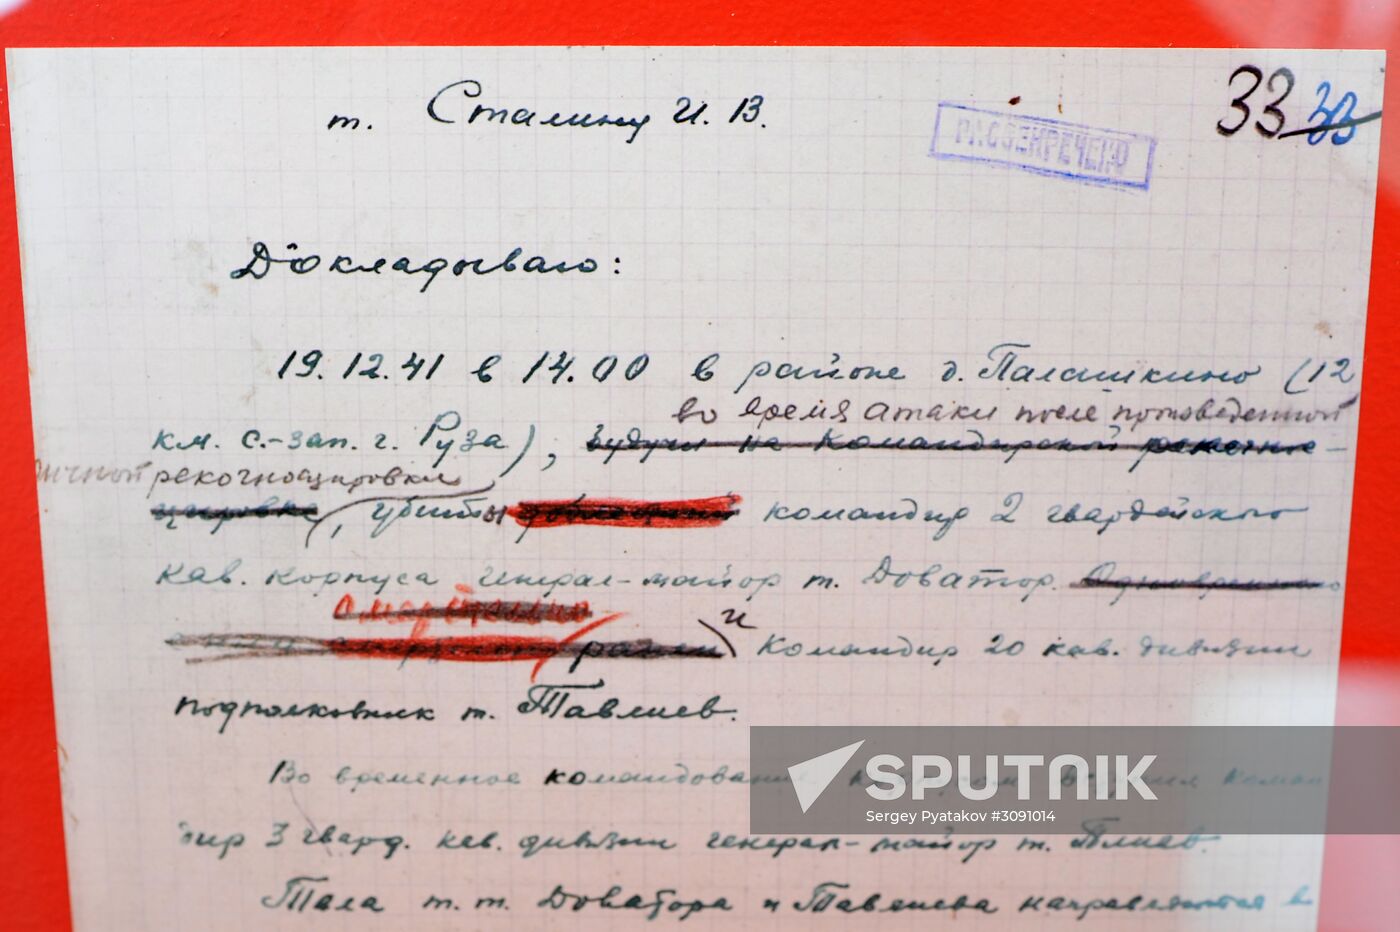 33 33
т. Сталину И. В.
РАССЕКРЕЧЕНО
Докладываю:
19.12.41 в 14.00 в районе д. Палашкино (12
во время атаки после произведенной
км. с.-зап. г. Руза), будучи на командирской рекогно-
личной рекогносцировки
сцировке, убиты командир 2 гвардейского
кав. корпуса генерал-майор т. Доватор. Одновременно
смертельно
ранен и командир 20 кав. дивизии
подполковник т. Тавлиев.
Во временное командование корпусом вступил коман
дир 3 гвард. кав. дивизии генерал-майор т. Плиев.
Тела т.т. Доватора и Тавлиева направляются в
SPUTNIK
Sergey Pyatakov #3091014